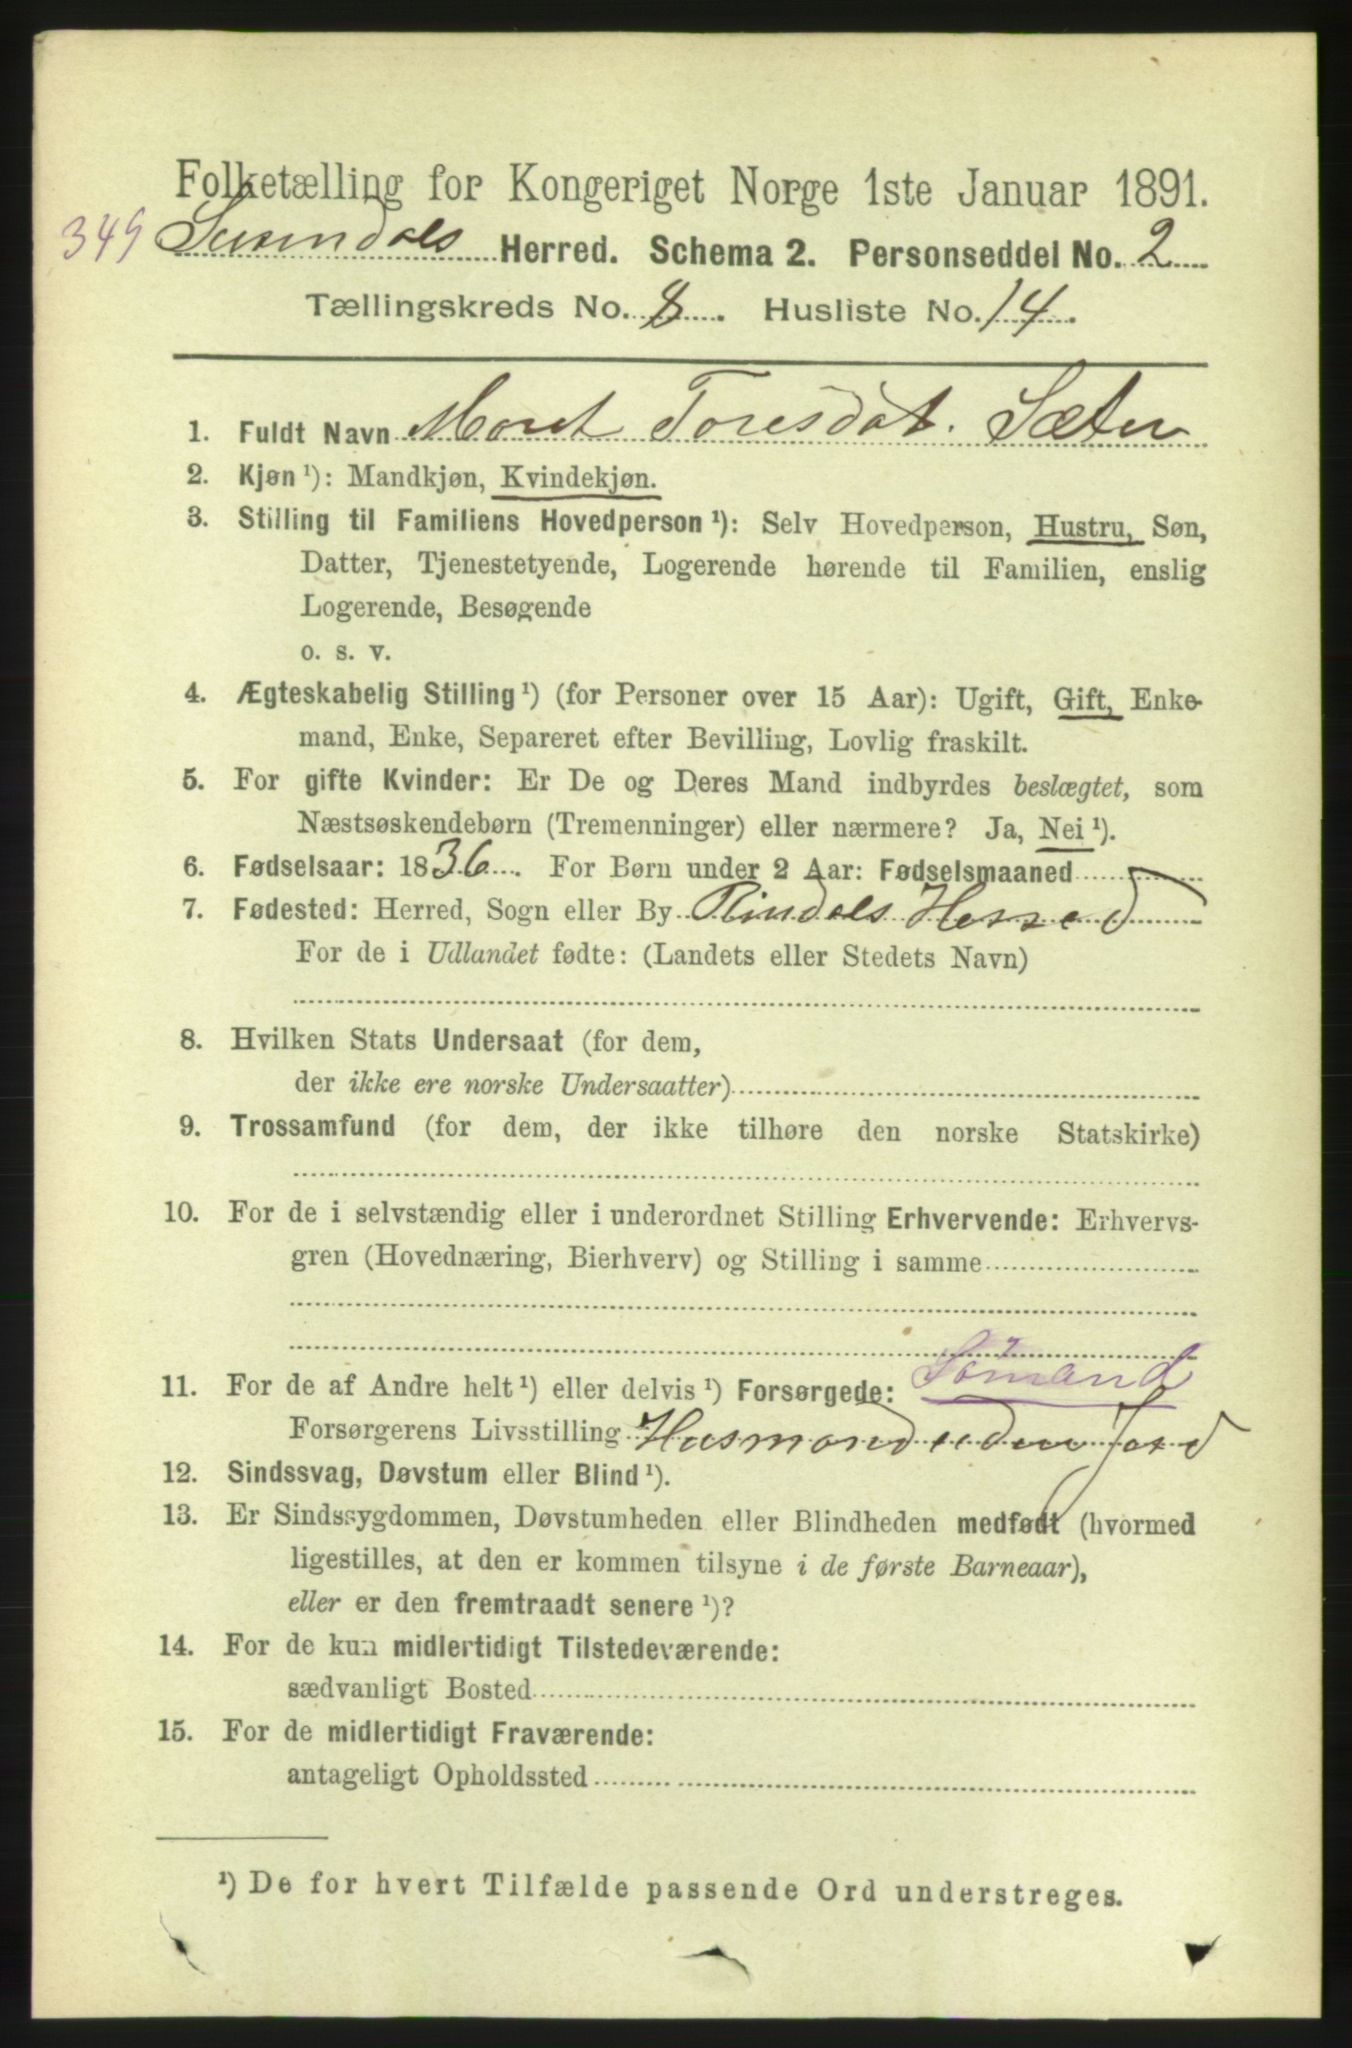 Folketælling for Kongeriget Norge 1ste Januar 1891.
349 Surendals Herred. Schema 2. Personseddel No. 2
Tællingskreds No. 8. Husliste No. 14.
1. Fuldt Navn Marit Toresdat. Sæter
2. Kjøn ¹): Mandkjøn, Kvindekjøn.
3. Stilling til Familiens Hovedperson ¹): Selv Hovedperson, Hustru, Søn,
Datter, Tjenestetyende, Logerende hørende til Familien, enslig
Logerende, Besøgende
o. s. v.
4. Ægteskabelig Stilling ¹) (for Personer over 15 Aar): Ugift, Gift, Enke-
mand, Enke, Separeret efter Bevilling, Lovlig fraskilt.
5. For gifte Kvinder: Er De og Deres Mand indbyrdes beslægtet, som
Næstsøskendebørn (Tremenninger) eller nærmere? Ja, Nei ¹).
6. Fødselsaar: 1836. For Børn under 2 Aar: Fødselsmaaned
7. Fødested: Herred, Sogn eller By Rindals Herred
For de i Udlandet fødte: (Landets eller Stedets Navn)
8. Hvilken Stats Undersaat (for dem,
der ikke ere norske Undersaatter)
9. Trossamfund (for dem, der ikke tilhøre den norske Statskirke)
10. For de i selvstændig eller i underordnet Stilling Erhvervende: Erhvervs-
gren (Hovednæring, Bierhverv) og Stilling i samme
11. For de af Andre helt ¹) eller delvis ¹) Forsørgede: Sømand
Forsørgerens Livsstilling Husmand uden Jord
12. Sindssvag, Døvstum eller Blind ¹).
13. Er Sindssygdommen, Døvstumheden eller Blindheden medfødt (hvormed
ligestilles, at den er kommen tilsyne i de første Barneaar),
eller er den fremtraadt senere ¹)?
14. For de kun midlertidigt Tilstedeværende:
sædvanligt Bosted
15. For de midlertidigt Fraværende:
antageligt Opholdssted
¹) De for hvert Tilfælde passende Ord understreges.